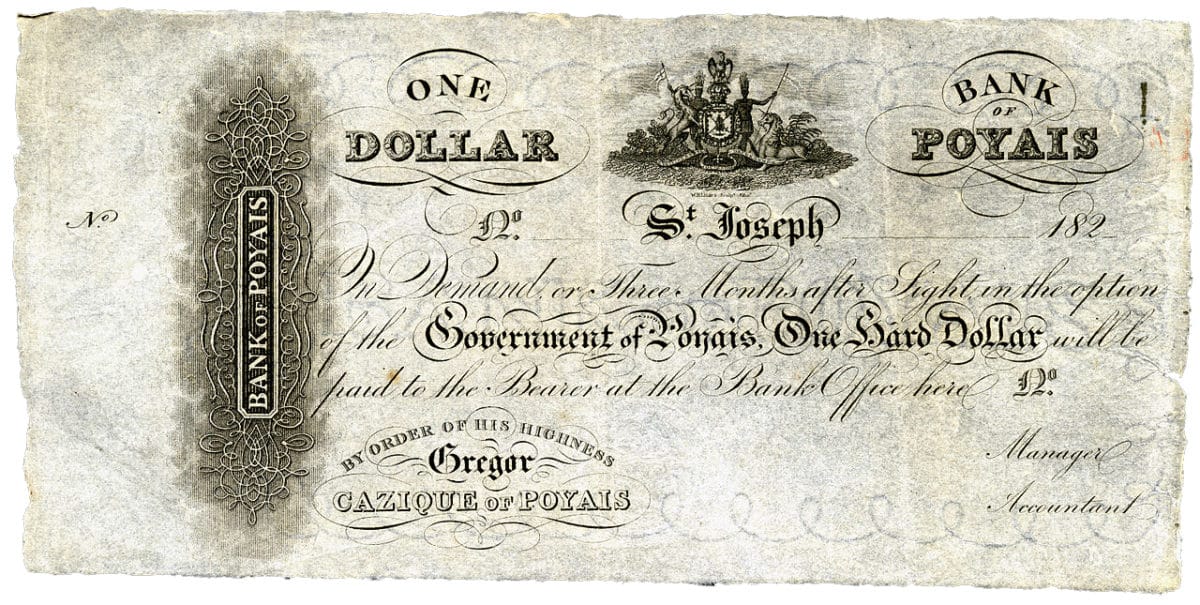 ONE
DOLLAR
BANK
OF
POYAIS
BANK OF POYAIS
Nº
Nº. Sᵗ. Joseph 182
On Demand, or Three Months after Sight, in the option
of the Government of Poyais, One Hard Dollar will be
paid to the Bearer at the Bank Office here Nº.
BY ORDER OF HIS HIGHNESS
Gregor
CAZIQUE OF POYAIS
Manager
Accountant